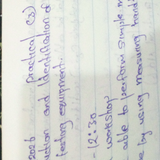 2026 Practical (3)
uction and Identification of
testing equipment.
- 12:30
workshop
able to perform simple m
e by using measuring hand